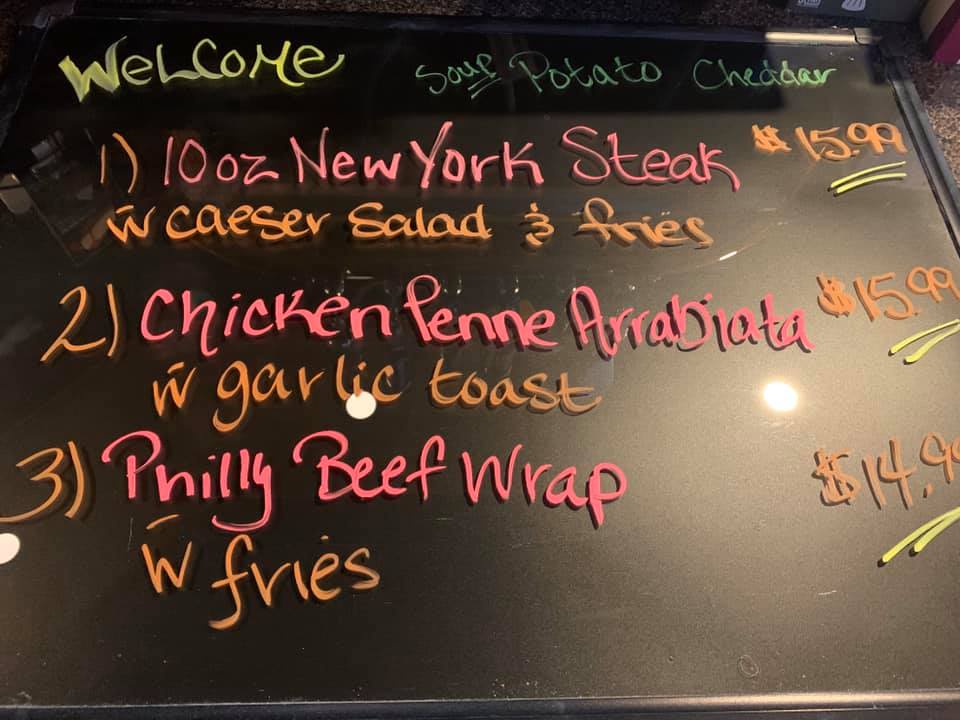 WELCOME Soup Potato Cheddar
1) 10oz New York Steak $15.99
w̄ caeser Salad & fries
2) Chicken Penne Arrabiata $15.99
w̄ garlic toast
3) Philly Beef Wrap $14.99
w̄ fries